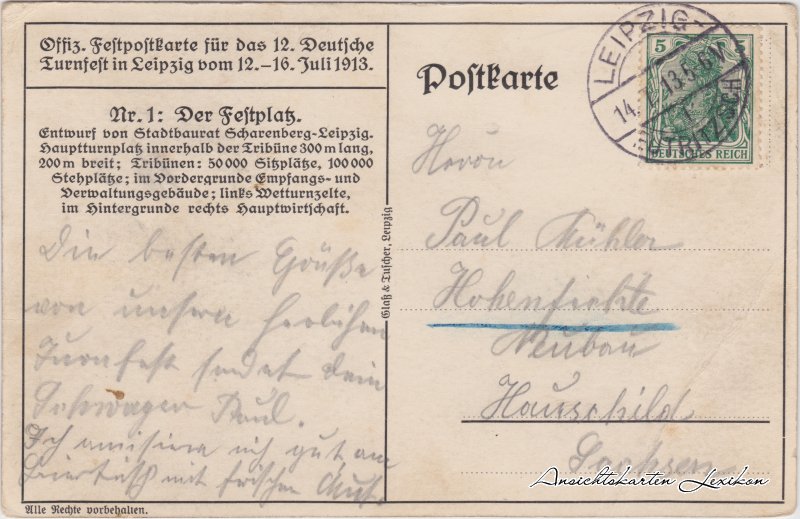 Offiz. Festpostkarte für das 12. Deutsche
Turnfest in Leipzig vom 12.–16. Juli 1913.
Nr. 1: Der Festplatz.
Entwurf von Stadtbaurat Scharenberg-Leipzig.
Hauptturnplatz innerhalb der Tribüne 300 m lang,
200 m breit; Tribünen: 50000 Sitzplätze, 100000
Stehplätze; im Vordergrunde Empfangs- und
Verwaltungsgebäude; links Wetturnzelte,
im Hintergrunde rechts Hauptwirtschaft.
Die besten Grüße
von unserm herrlichen
Turnfest sendet dein
Schwager Paul.
Ich amisiere mich gut am
mit frischen Mut.
Alle Rechte vorbehalten.
Glaß & Tuscher, Leipzig
Postkarte
LEIPZIG-
14. 7. 13. 5-6 N.
5 5
DEUTSCHES REICH
Herrn
Paul Mühler
Hohenfichte
Neubau
Hauschild
Sachsen
Ansichtskarten Lexikon